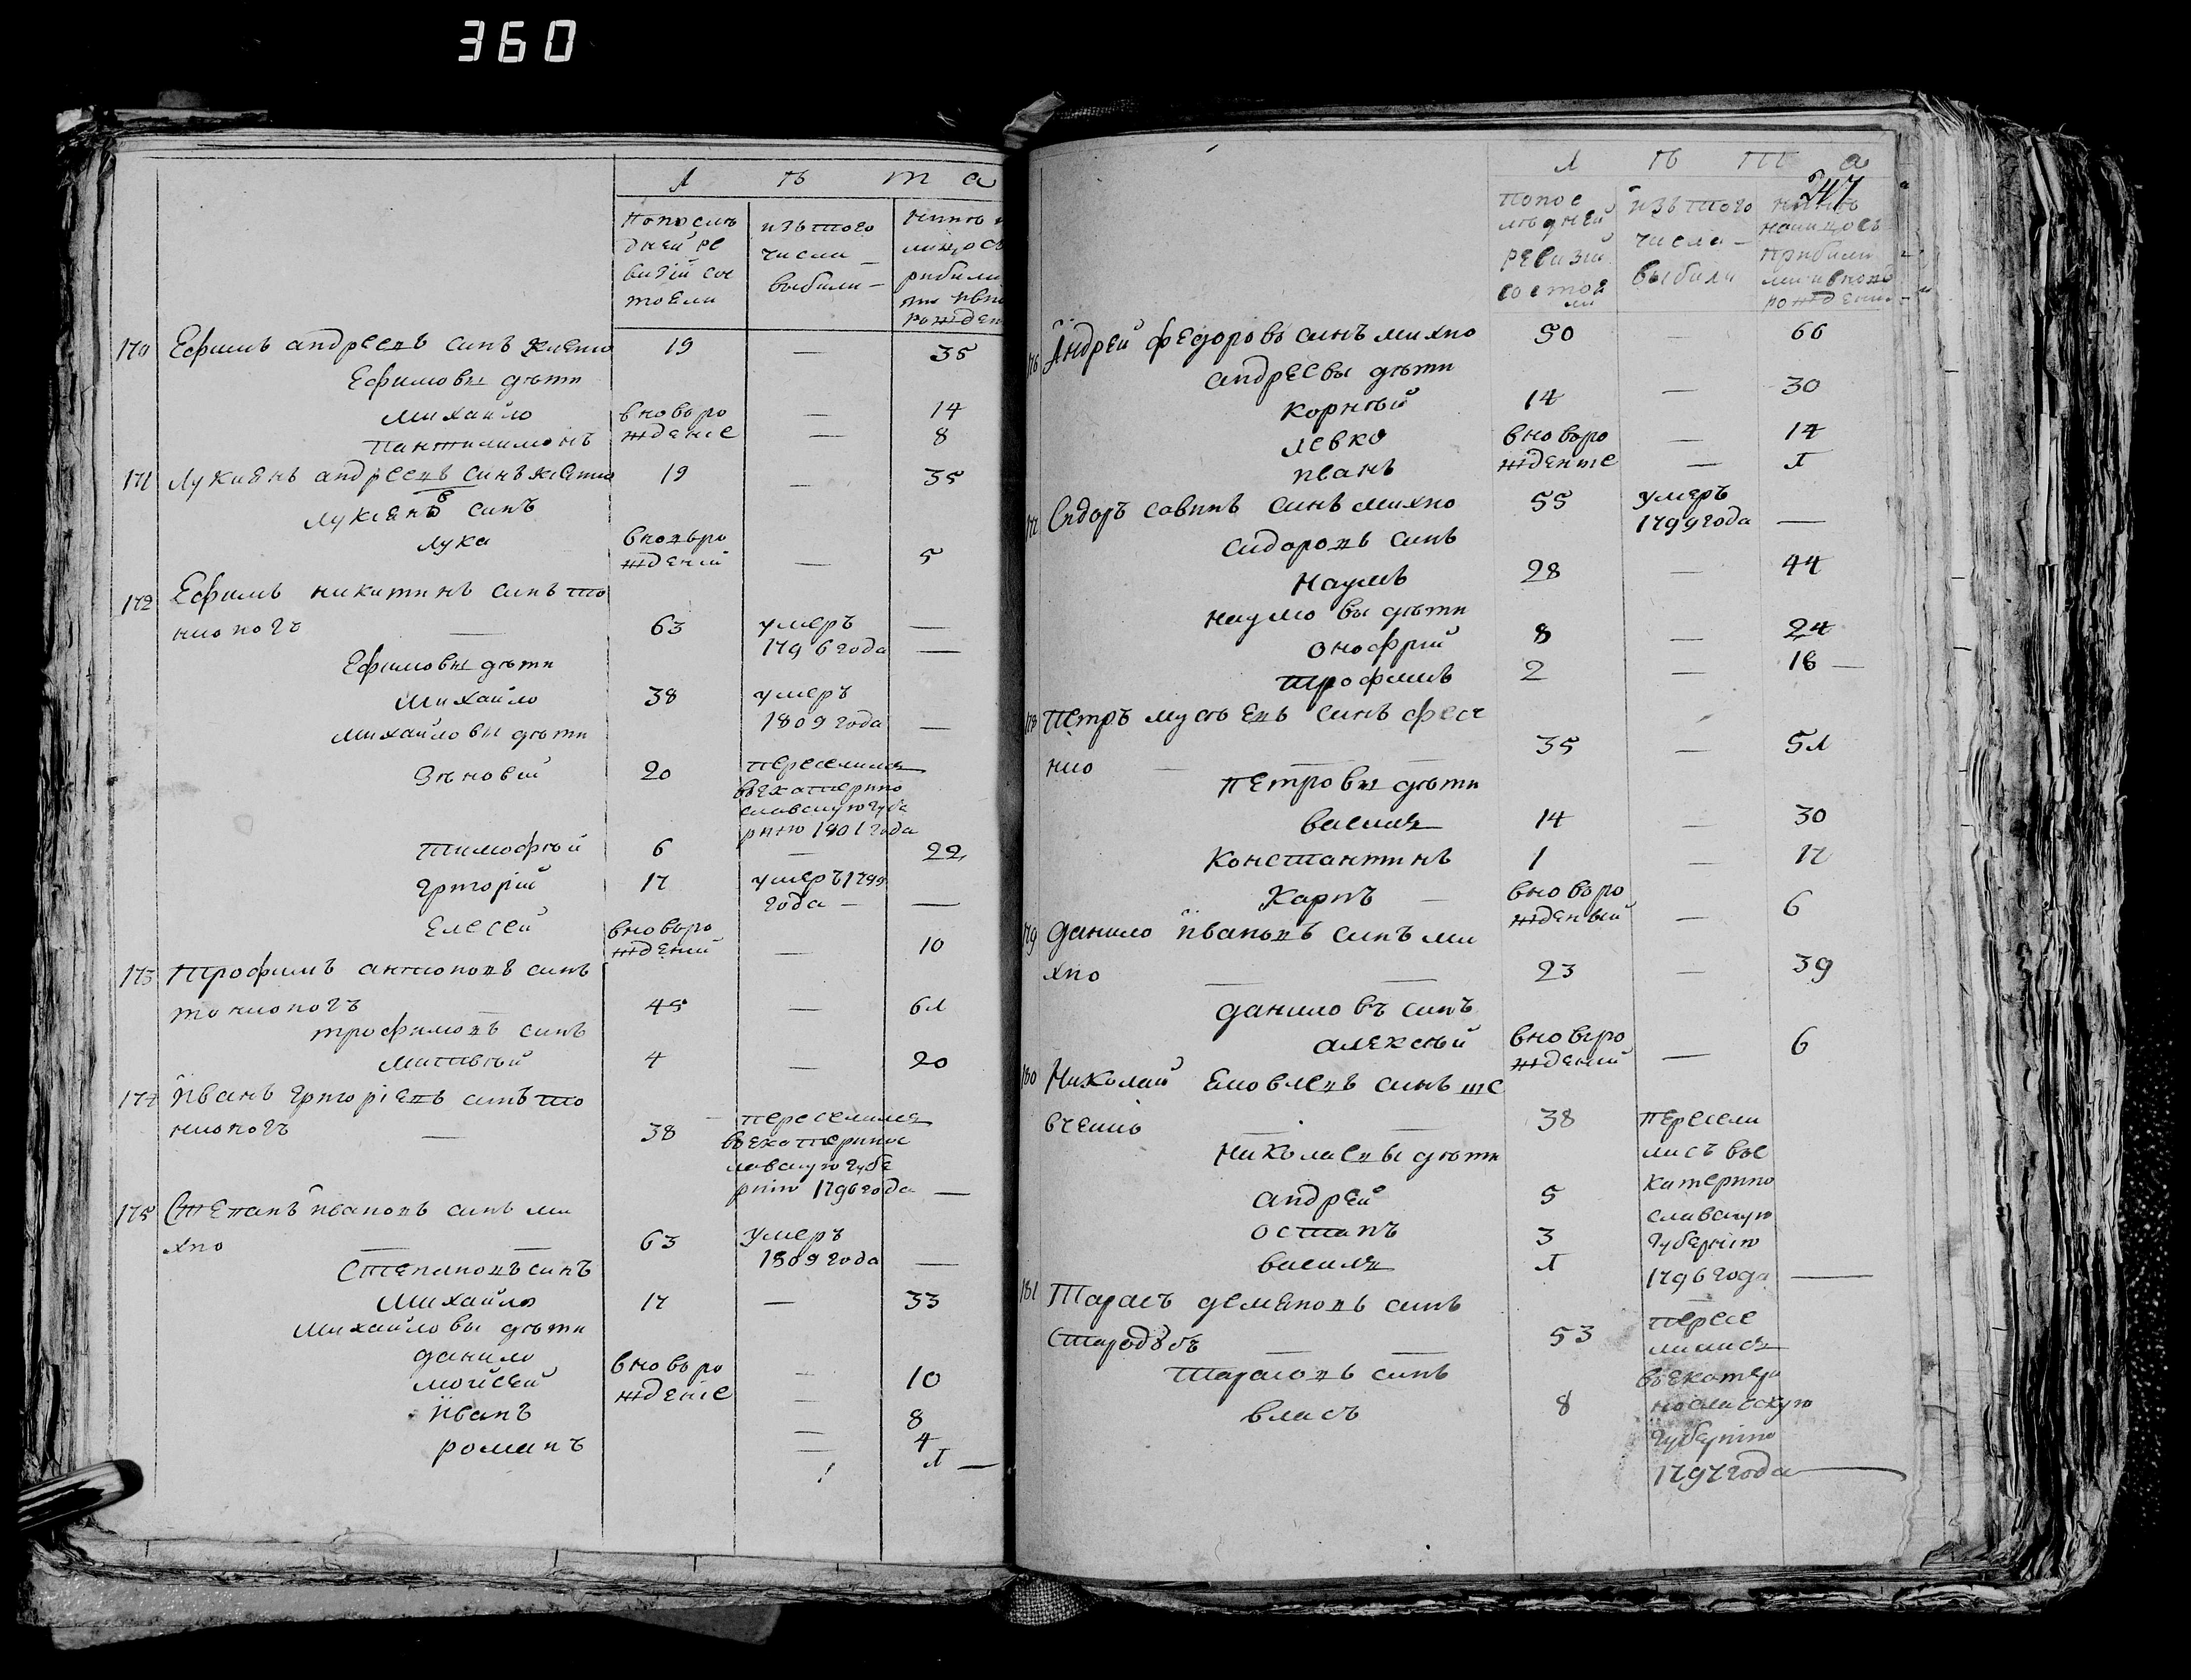 360
Л ѣ т а
попослѣ
дней ре
визiи сос
тоѣли
изъ того
числа
выбыли
рожден
170 Ефимъ андреевъ синъ
19 — 35
Ефимовы дѣти
Михайло вновъро — 14
Пантилимонъ жденiе — 8
171 Лукиянъ андреевъ синъ
19 — 35
Лукянъ синъ
Лука вновъро
жденiй — 5
172 Ефимъ никитинъ синъ то
нконогъ — 63 умеръ —
1796 года —
Ефимовы дѣти
Михайло 38 умеръ
1809 года —
Михайловы дѣти
Зѣновiй 20 переселился
въекатерино
славскую губе
рнiю 1801 года
Тимофѣй 6 — 22
Григорiй 17 умеръ 1799
года — —
Елесей вновъро
жденiй — 10
173 Трофимъ антоновъ синъ
тонконогъ — 45 — 61
трофимовъ синъ
Матвѣй 4 — 20
174 Иванъ Григорiевъ синъ то
нконогъ — 38 переселился
въекатеринос
лавскую губе
рнiю 1796 года —
175 Степанъ ивановъ синъ ми
хно — — 63 умеръ
1809 года —
Степановъ синъ
Михайло 17 — 33
Михайловы дѣти
данило вновъро — 10
мойсей жденiе — 8
Иванъ — 4
романъ — 1 —
Л ѣ т а
247
попос
лѣдней
ревизiй
состоя
ли
изъ того
числа —
выбыли
нынѣ
налицосъ
прибыли
ми ивново
рождени
176 Андрей федоровъ синъ михно 50 — 66
андреевы дѣти
корнѣй 14 — 30
левко вновъро — 14
иванъ жденiе — 1
177 Сидоръ савинъ синъ михно 55 умеръ
1799 года —
сидоровъ синъ
Наумъ 28 — 44
наумовы дѣти
онофрiй 8 — 24
трофимъ 2 — 18 —
178 Петръ мусѣевъ синъ
нко — — — 35 — 51
петровы дѣти
василя 14 — 30
константинъ 1 — 17
Карпъ — вновъро
жденый — 6
179 данило ивановъ синъ ми
хно — — 23 — 39
даниловъ синъ
алексѣй вновъро
жденiй — 6
180 Николай Ековлевъ синъ ше
вченко — — 38 пересели
лисъ вые
николаевы дѣти
катерино
андрей 5 славскую
остапъ 3 губернiю
василя 1 1796 года —
181 Тарасъ деменовъ синъ
Стародубъ — — 53 пересе
лился
Тарасовъ синъ въекатери
власъ 8 нославскую
губернiю
1797 года —